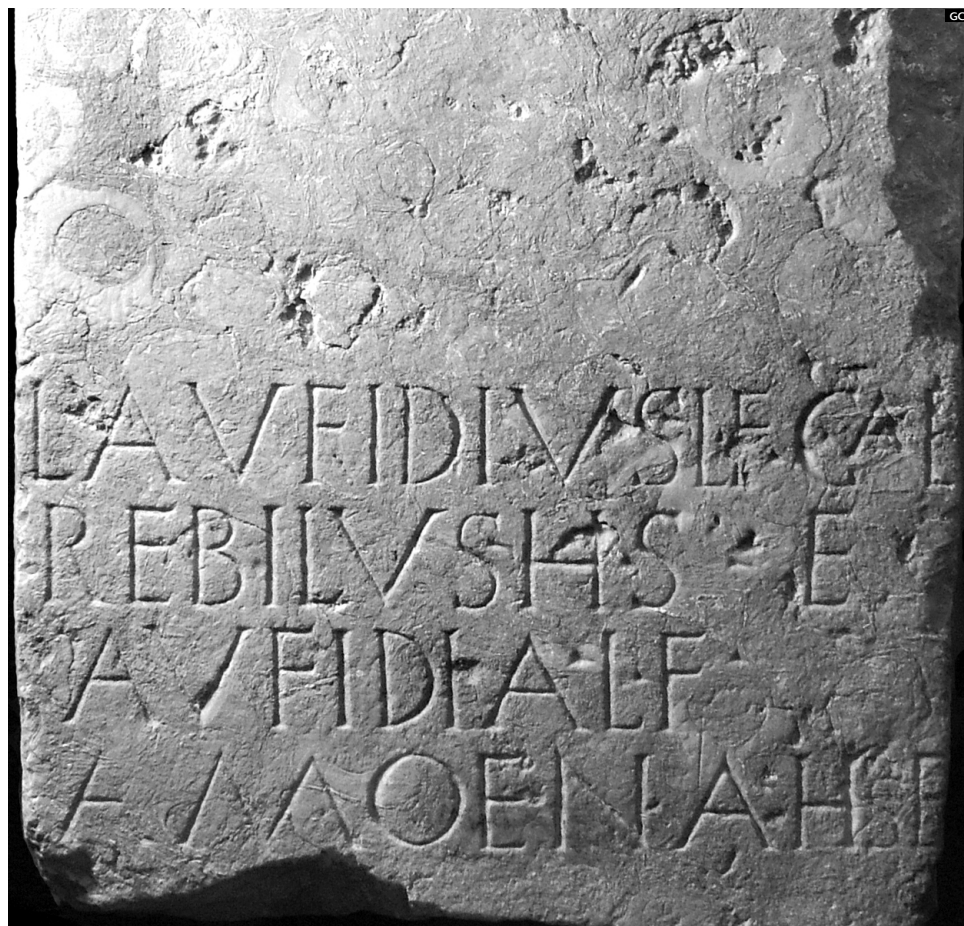 L AVFIDIVS L F GAL
REBILVS H S E
AVFIDIA L F
AMOENA H S E
GC